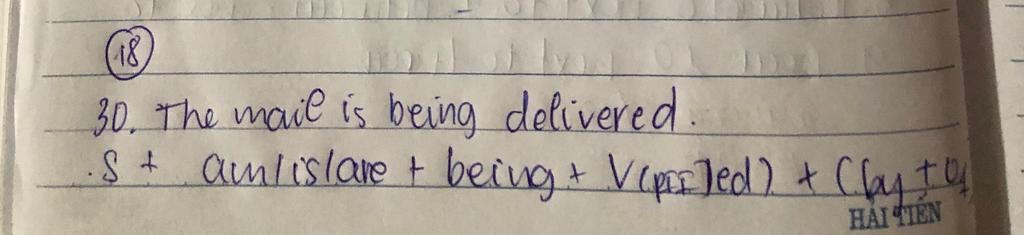 18
30. The mail is being delivered.
.S + am/is/are + being + V(pII/ed) + (by + O
HẢI TIẾN